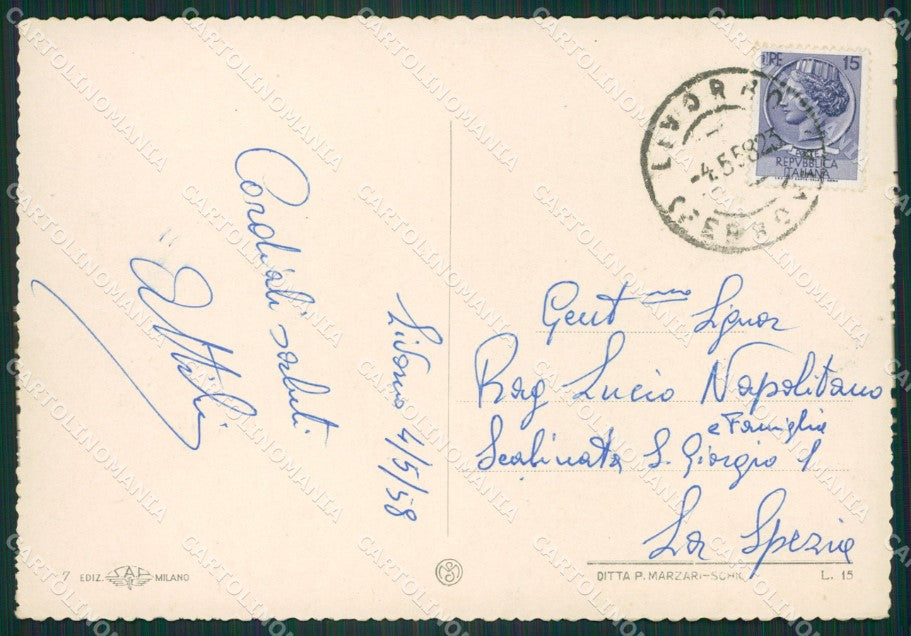 Cordiali saluti
Livorno 4/5/58
LIRE 15
REPVBBLICA
ITALIANA
LIVORNO
-4.5.58 23
FERROVIA
Gent mo Signor
Rag Lucio Napolitano
e Famiglia
Scalinata S. Giorgio 1
La Spezia
7 EDIZ. SAF MILANO
DITTA P. MARZARI-SCHIO
L. 15
CARTOLINOMANIA